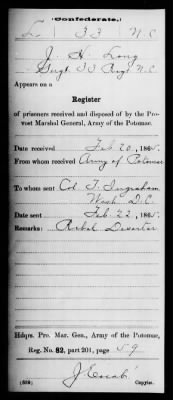 Confederate.
L 33 N.C.
J. H. Long
Sergt 33 Regt N.C.
Appears on a
Register
of prisoners received and disposed of by the Pro-
vost Marshal General, Army of the Potomac.
Date received Feb 20, 1865.
From whom received Army of Potomac
To whom sent Col. T. Ingraham
Wash. D.C.
Date sent Feb. 22, 1865.
Remarks: Rebel Deserter
Hdqrs. Pro. Mar. Gen., Army of the Potomac,
Reg. No. 82, part 201, page 59
(639) Copyist.